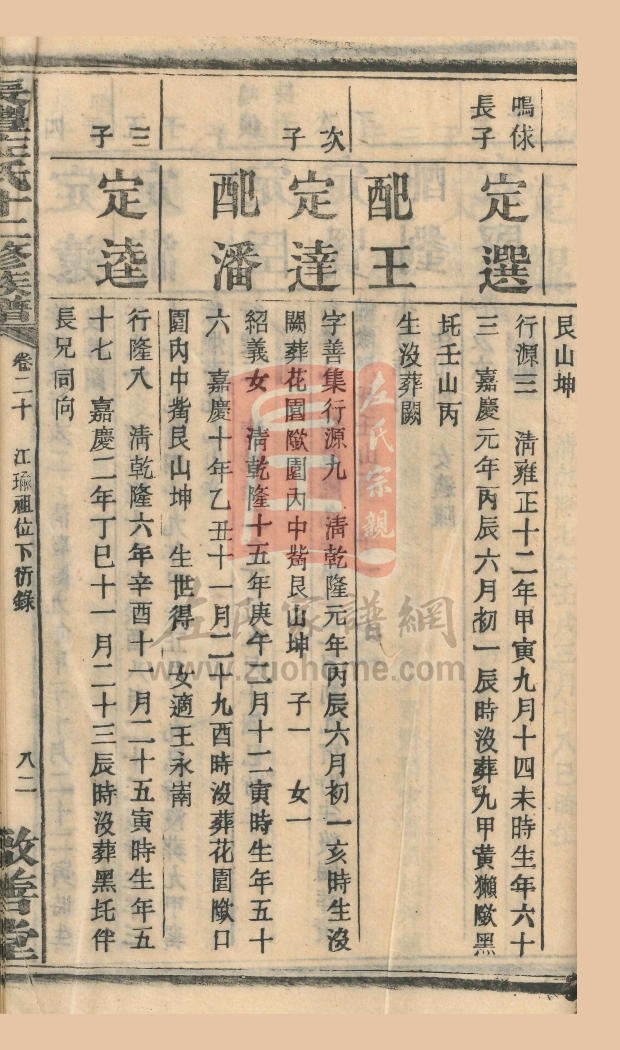 艮山坤
鳴俅
長子
定選
行源三 淸雍正十二年甲寅九月十四未時生年六十
三 嘉慶元年丙辰六月初一辰時沒葬九甲黃獺㘭黑
圫壬山丙
配王
生沒葬闕
次子
定達
字善集行源九 淸乾隆元年丙辰六月初一亥時生沒
闕葬花園㘭園內中㟮艮山坤 子一 女一
配潘
紹義女 淸乾隆十五年庚午二月十二寅時生年五十
六 嘉慶十年乙丑十一月二十九酉時沒葬花園㘭口
園內中㟮艮山坤 生世得 女適王永崗
三子
定逵
行隆八 淸乾隆六年辛酉十一月二十五寅時生年五
十七 嘉慶二年丁巳十一月二十三辰時沒葬黑圫伴
長兄同向
左氏十二修族譜
卷二十 江瑜祖位下衍錄
八二
敦善堂
左氏宗親
左氏家譜網
www.zuohome.com